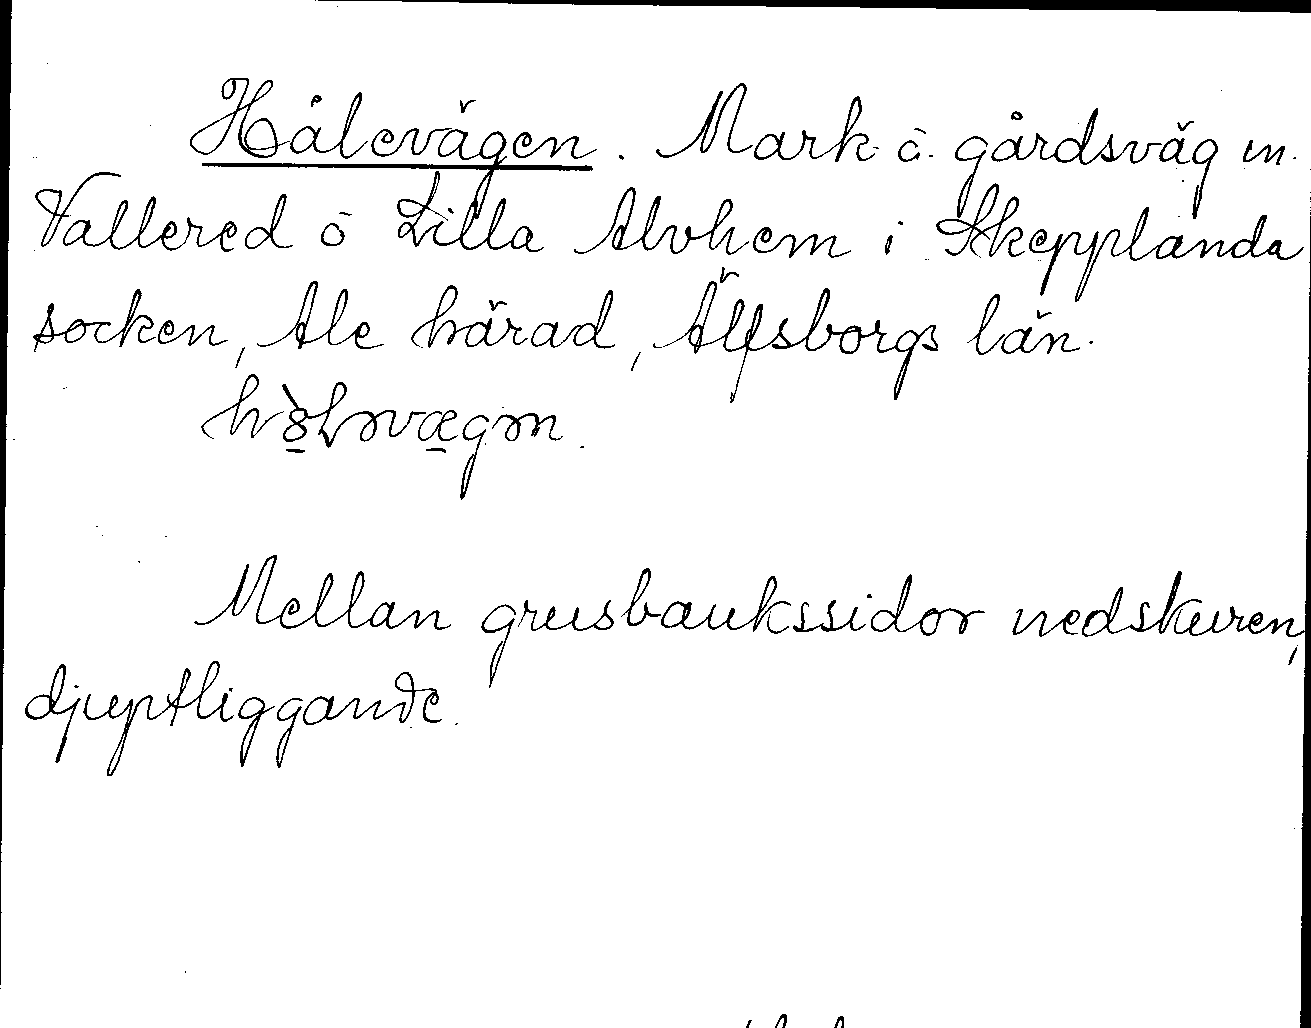 Hålevägen. Mark- å. gårdsväg m.
Vallered ö Lilla Alvhem i Skepplanda
socken, Ale härad, Älfsborgs län.
Mellan grusbankssidor nedskuren,
djuptliggande.